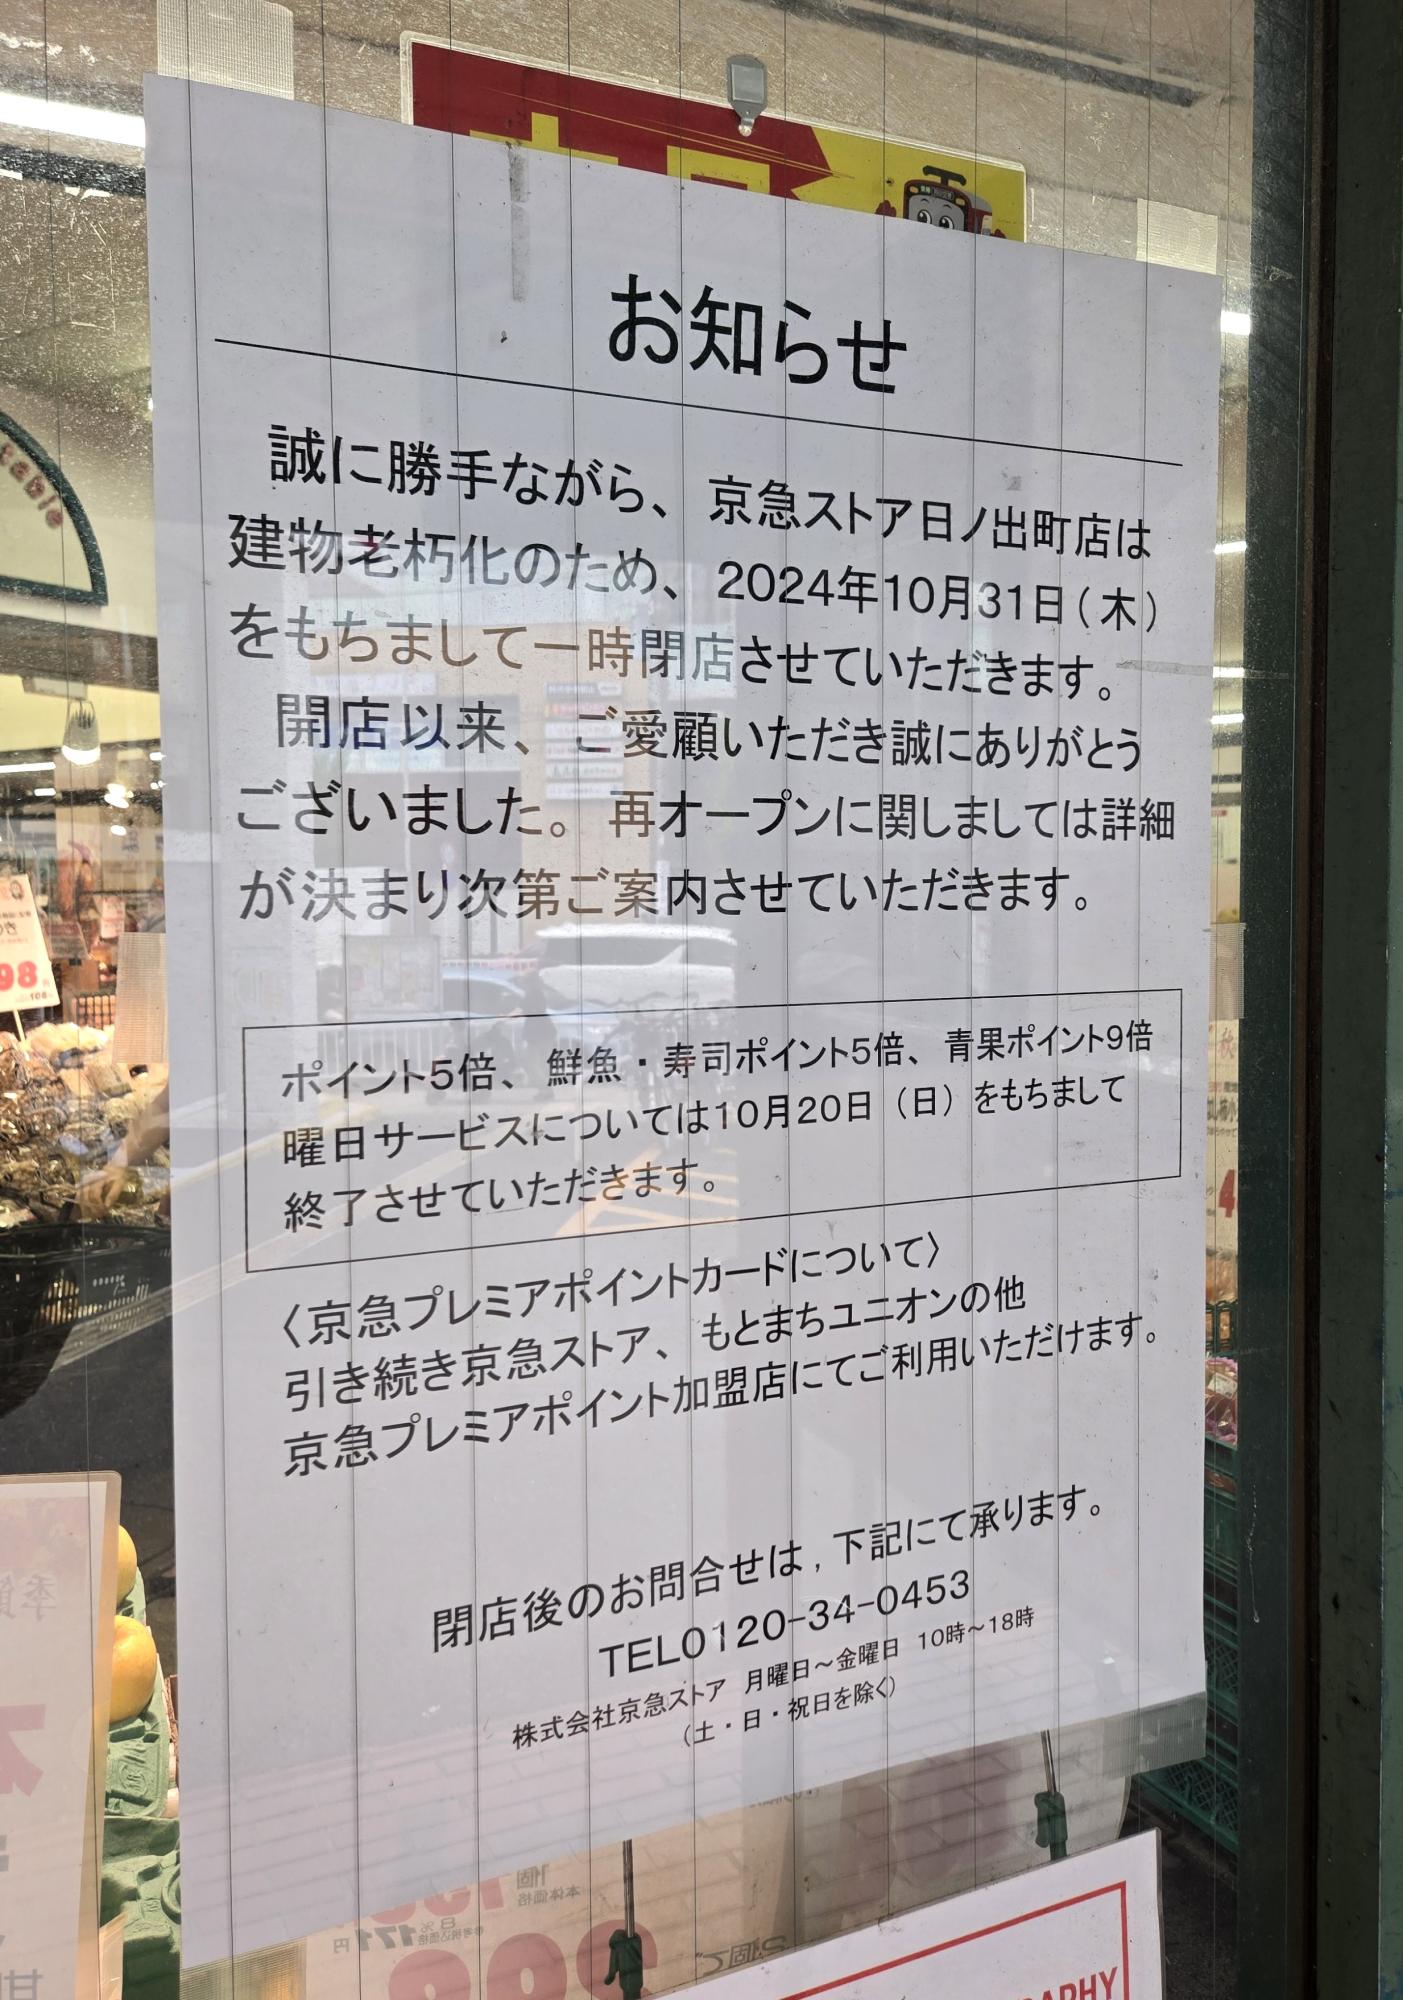 お知らせ
誠に勝手ながら、京急ストア日ノ出町店は
建物老朽化のため、2024年10月31日(木)
をもちまして一時閉店させていただきます。
開店以来、ご愛顧いただき誠にありがとう
ございました。再オープンに関しましては詳細
が決まり次第ご案内させていただきます。
ポイント5倍、鮮魚・寿司ポイント5倍、青果ポイント9倍
曜日サービスについては10月20日（日）をもちまして
終了させていただきます。
〈京急プレミアポイントカードについて〉
引き続き京急ストア、もとまちユニオンの他
京急プレミアポイント加盟店にてご利用いただけます。
閉店後のお問合せは,下記にて承ります。
TEL0120-34-0453
株式会社京急ストア 月曜日～金曜日 10時～18時
(土・日・祝日を除く)
98